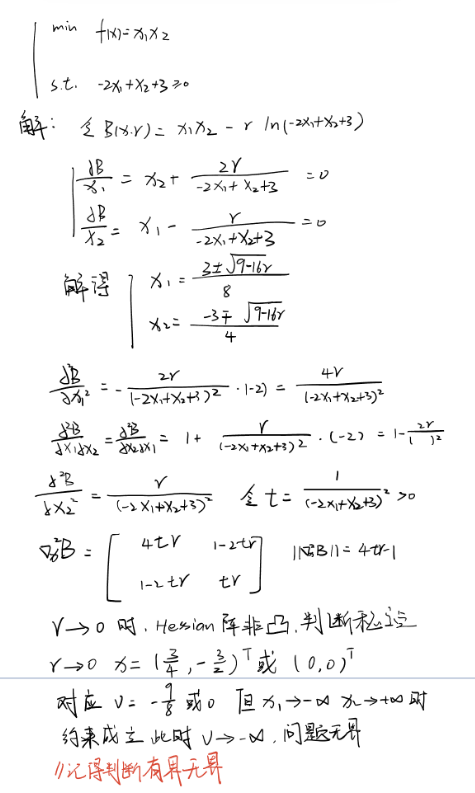 min f(x)=x₁x₂
s.t. -2x₁+x₂+3≥0
解: 令B(x.r)= x₁x₂ - r ln(-2x₁+x₂+3)
∂B/x₁ = x₂+ 2r/(-2x₁+x₂+3) =0
∂B/x₂ = x₁- r/(-2x₁+x₂+3) =0
解得 x₁ = (3±√(9-16r))/8
x₂ = (-3∓√(9-16r))/4
∂²B/∂x₁² = - 2r/(-2x₁+x₂+3)² ·(-2) = 4r/(-2x₁+x₂+3)²
∂²B/∂x₁∂x₂ = ∂²B/∂x₂∂x₁ = 1+ r/(-2x₁+x₂+3)² ·(-2) = 1- 2r/( )²
∂²B/∂x₂² = r/(-2x₁+x₂+3)² 令 t= 1/(-2x₁+x₂+3)² >0
∇ₓ²B = [4tr 1-2tr
1-2tr tr] ||∇²B||= 4tr-1
r→0 时. Hessian 阵非凸. 判断稳定
r→0 x= (3/4, -3/2)ᵀ或 (0,0)ᵀ
对应 v= -9/8 或0 但 x₁→-∞ x₂→+∞ 时
约束成立 此时 v→-∞. 问题无界
//记得判断有界无界